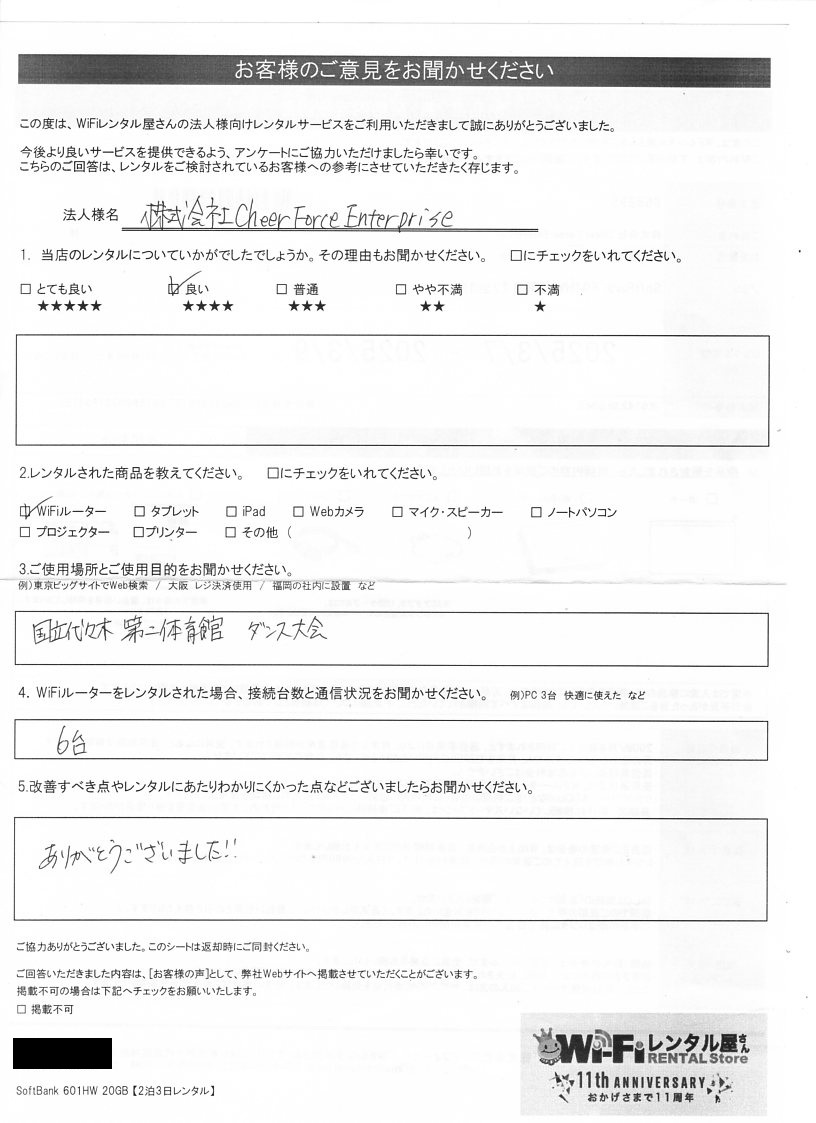 お客様のご意見をお聞かせください
この度は、WiFiレンタル屋さんの法人様向けレンタルサービスをご利用いただきまして誠にありがとうございました。
今後より良いサービスを提供できるよう、アンケートにご協力いただけましたら幸いです。
こちらのご回答は、レンタルをご検討されているお客様への参考にさせていただきたく存じます。
法人様名 株式会社Cheer Force Enterprise
1. 当店のレンタルについていかがでしたでしょうか。その理由もお聞かせください。 □にチェックをいれてください。
□ とても良い ☑ 良い □ 普通 □ やや不満 □ 不満
★★★★★ ★★★★ ★★★ ★★ ★
2.レンタルされた商品を教えてください。 □にチェックをいれてください。
☑ WiFiルーター □ タブレット □ iPad □ Webカメラ □ マイク・スピーカー □ ノートパソコン
□ プロジェクター □プリンター □ その他 ( )
3.ご使用場所とご使用目的をお聞かせください。
例)東京ビッグサイトでWeb検索 / 大阪 レジ決済使用 / 福岡の社内に設置 など
国立代々木 第二体育館 ダンス大会
4. WiFiルーターをレンタルされた場合、接続台数と通信状況をお聞かせください。 例)PC 3台 快適に使えた など
6台
5.改善すべき点やレンタルにあたりわかりにくかった点などございましたらお聞かせください。
ありがとうございました!!
ご協力ありがとうございました。このシートは返却時にご同封ください。
ご回答いただきました内容は、[お客様の声]として、弊社Webサイトへ掲載させていただくことがございます。
掲載不可の場合は下記へチェックをお願いいたします。
□ 掲載不可
WiFiレンタル屋さん
RENTAL Store
11th ANNIVERSARY
おかげさまで11周年
SoftBank 601HW 20GB【2泊3日レンタル】